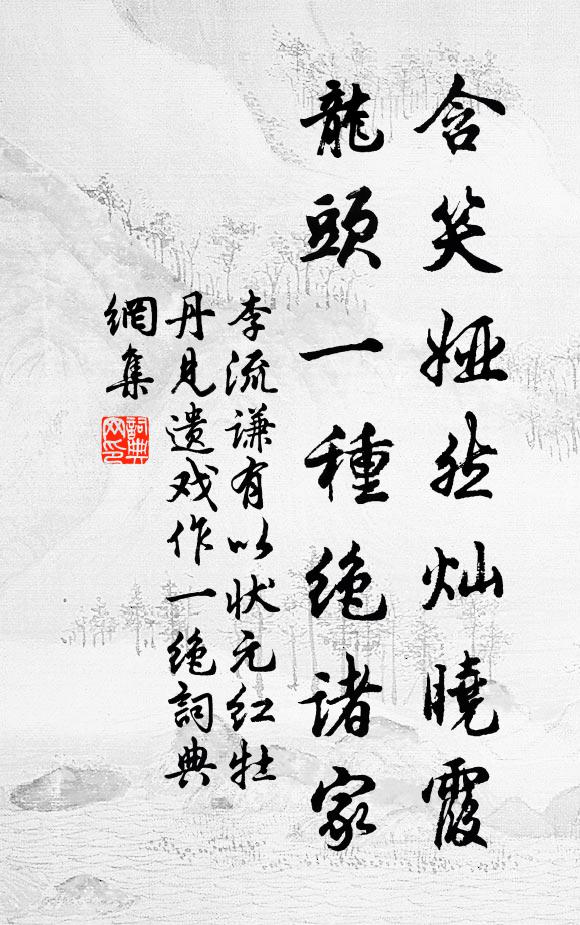 含笑娅然灿曉霞
龍頭一種絶諸家
李流谦有以状元红牡
丹見遗戏作一绝詞典
網集
詞典
网印